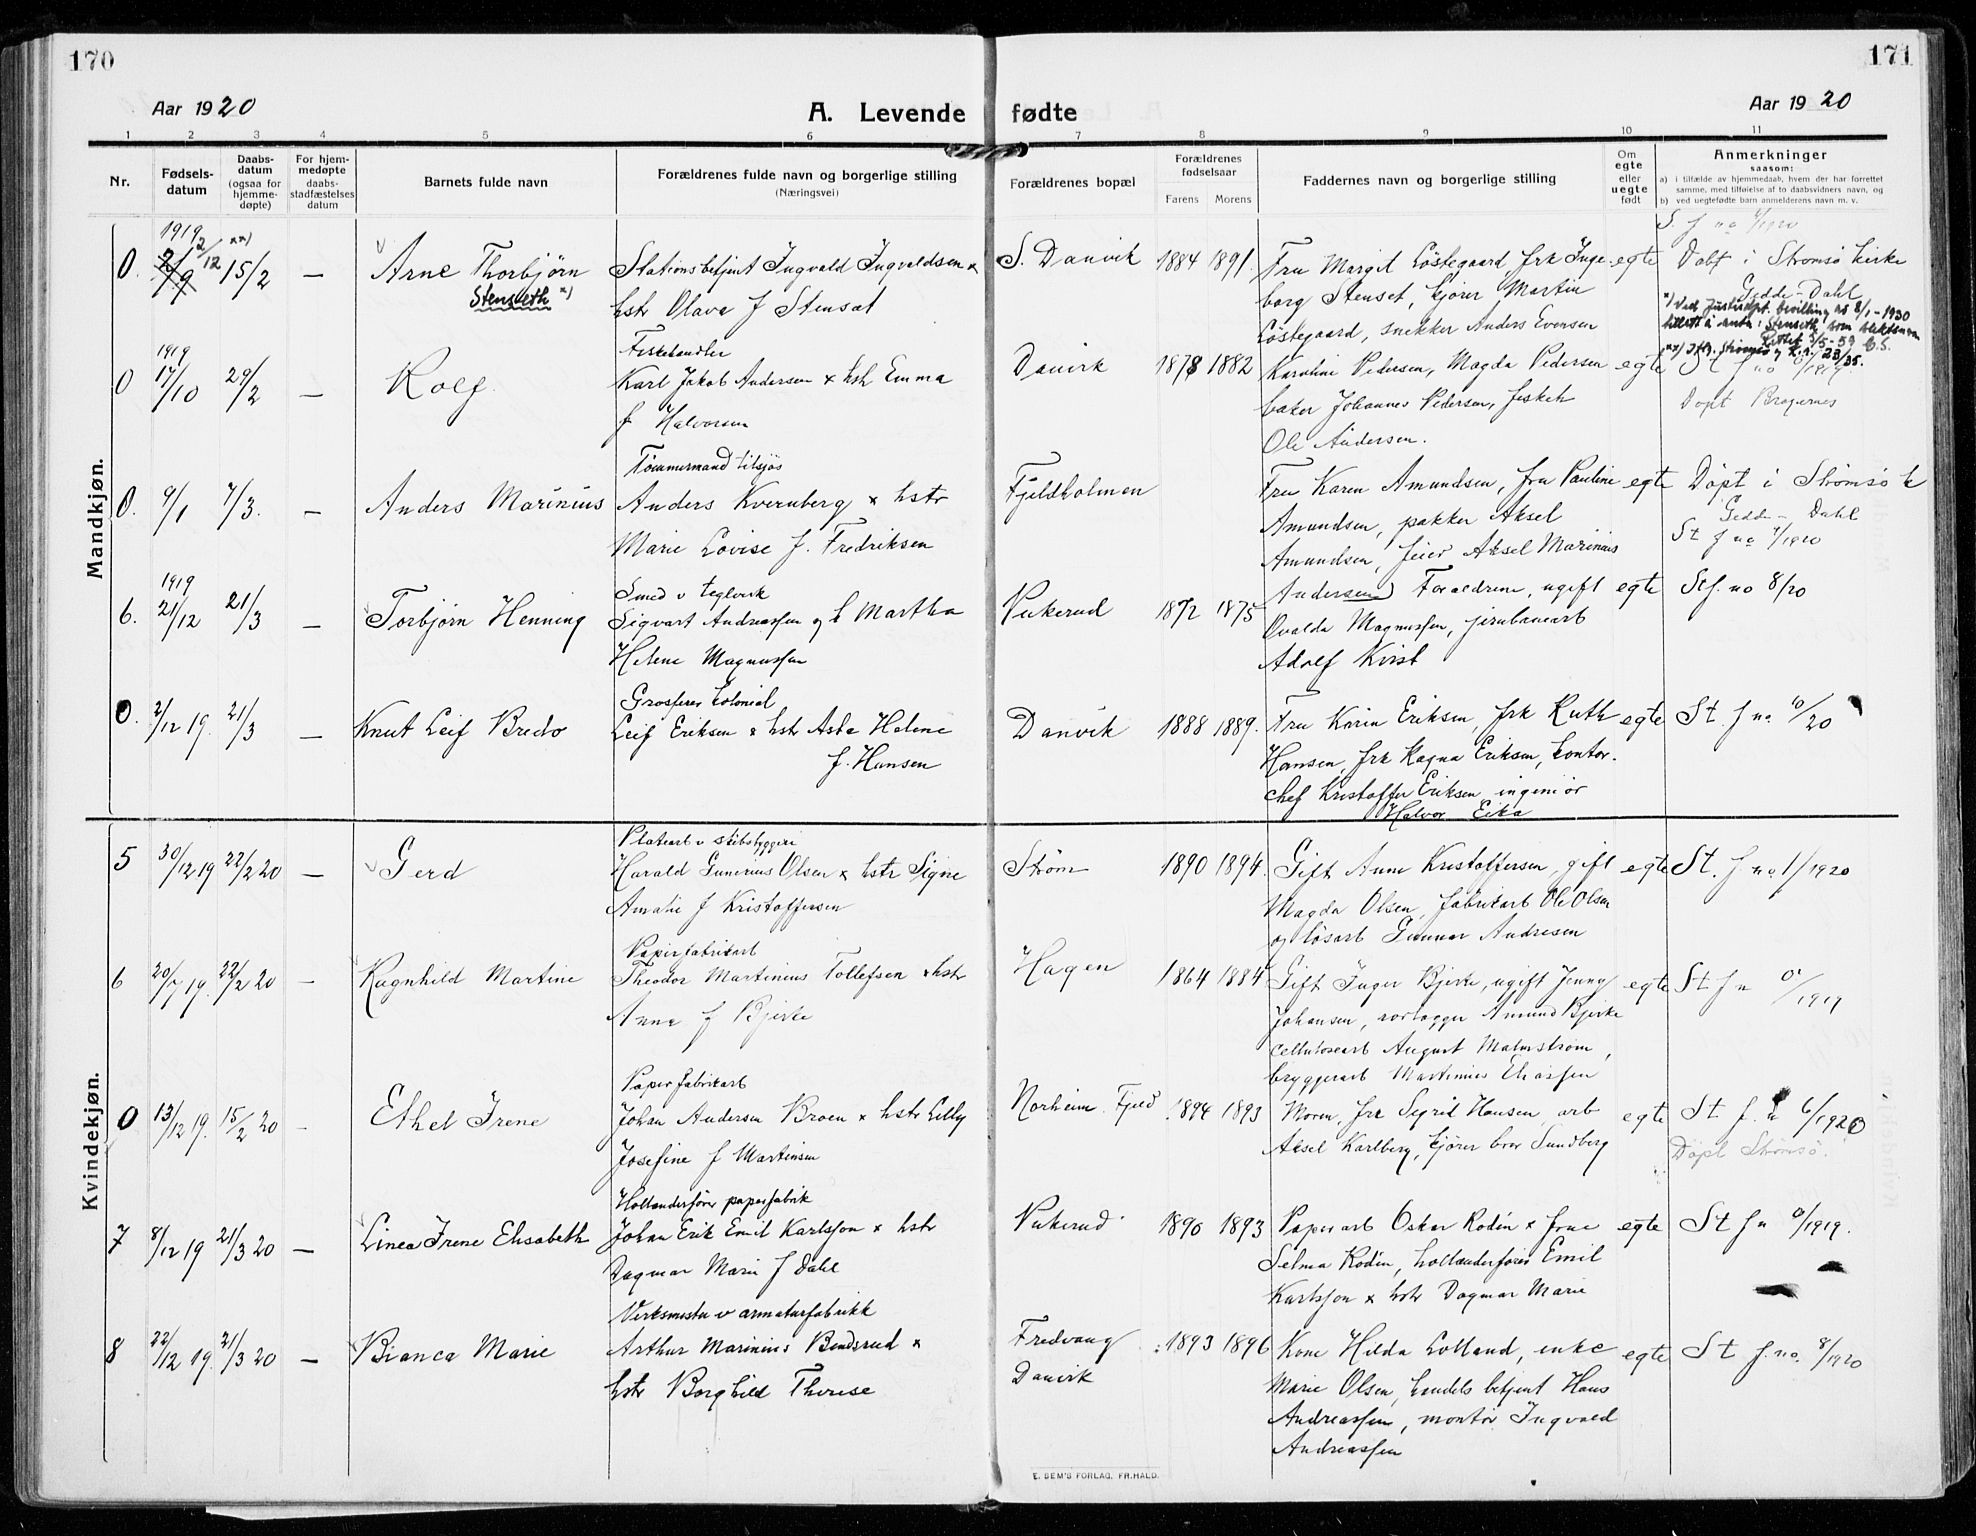 170
171
Aar 1920
A. Levende fødte
Aar 1920
1 2 3 4 5 6 7 8 9 10 11
Nr.
Fødsels-
datum
Daabs-
datum
(ogsaa for
hjemme-
døpte)
For hjem-
medøpte
daabs-
stadfæstelses
datum
Barnets fulde navn
Forældrenes fulde navn og borgerlige stilling
(Næringsvei)
Forældrenes bopæl
Forældrenes
fødselsaar
Farens Morens
Faddernes navn og borgerlige stilling
Om
egte
eller
uegte
født
Anmerkninger
saasom:
a) i tilfælde av hjemmedaab, hvem der har forrettet
samme, med tilføielse af to daabsvidners navn, og
b) ved uegtefødte barn anmelderens navn m. v.
Mandkjøn.
1919
0. 2/12 15/2 xx) — Arne Thorbjörn
Stenseth x)
Stationsbetjent Ingvald Ingvaldsen x
hstr Olava f Stensat
S. Danvik 1884 1891.
Fru Margit Löstegaard, frk Inge
borg Stenset, kjörer Martin
Löstegaard, snekker Anders Evensen
egte
Döbt i Strömsö kirke
Gedde-Dahl
x) Ved Justisdpt. bevilling av 8/1-1930
tillatt å anta: Stenseth som slektsnavn
1919
0 17/10 29/2 — Rolf.
Fiskehandler
Karl Jakob Andersen x hstr Emma
f Halvorsen
Danvik 1878 1882
Karoline Pedersen, Magda Pedersen
baker Johannes Pedersen, fiskeh
Ole Andersen.
egte
Döpt Bragernes
0. 9/1 7/3. — Anders Marinius
Tömmermand tilsjös
Anders Kvernberg x hstr
Marie Lovise f. Fredriksen
Fjeldholmen
Fru Karen Amundsen, fru Pauline
Amundsen, pakker Aksel
Amundsen, feier Aksel Marinius
Andersen
egte
Döpt i Strömsö k
Gedde-Dahl
St f no 7/1920
1919
6. 21/12 21/3 — Torbjörn Henning
Smed v Teglverk
Sigvart Andreassen og h Martha
Helene Magnussen
Vikerud 1872 1875
Forældrene, ugift
Ovalda Magnussen, jernbanearb
Adolf Kvist
egte
Stf. no 8/20
0. 2/12 19. 21/3 — Knut Leif Bredo
Grosserer kolonial
Leif Eriksen x hstr Asta Helene
f. Hansen
Danvik 1888 1889.
Fru Karin Eriksen, frk Ruth
Hansen, frk Ragna Eriksen, kontor.
chef Kristoffer Eriksen, ingeniör
Halvor Eika
egte
St f no 10/20
Kvindekjøn.
5 30/12 19 22/2 20 — Gerd
Platearb v skibsbyggeri
Harald Gunerius Olsen x hstr Signe
Amalie f Kristoffersen
Ström 1890 1894.
Gift Anne Kristoffersen, gift
Magda Olsen, fabrikarb Ole Olsen
og lösarb Gunnar Andresen
egte
St. f no 1/1920
6 20/7 19. 22/2 20 — Ragnhild Martine
Papirfabrikarb
Theodor Martinius Tollefsen x hstr
Anna f Bjerke
Hagen 1864 1884
Gift Inger Bjerke, ugift Jenny
Johansen, rorlogger Amund Bjerke
cellulosearb August Malmström,
bryggerarb Martinius Eliassen
egte
St f n 0/1919
0 13/12 19. 15/2 20 - Ethel Irene
Papirfabrikarb
Johan Andersen Broen x hstr Lilly
Josefine f Martinsen
Norheim. Fjeld 1894 1893
Moren, frk Sigrid Hansen, arb
Aksel Karlberg, kjörer Ivar Sundberg
egte
St f. n 6/1920
Döpt Strömsö.
7 8/12 19 21/3 20 — Linea Irene Elisabeth
Hollænderförer papirfabrik
Johan Erik Emil Karlsson x hstr
Dagmar Marie f Dahl
Vikerud 1890 1893
Papirarb Oskar Rodén x frue
Selma Rodén, hollænderförer Emil
Karlsson x hstr Dagmar Marie
egte
St f n 0/1919.
8 22/12 19. 21/3 20 — Bianca Marie
Verksmester v armaturfabrikk
Arthur Marinius Bendsrud x
hstr Borghild Therese
Fredvang
Danvik
1893 1896
Kone Hilda Lolland, enke
Marie Olsen, handelsbetjent Hans
Andreassen, montör Ingvald
Andreassen
egte
St f. no. 8/1920
E. SEM'S FORLAG, FR.HALD.